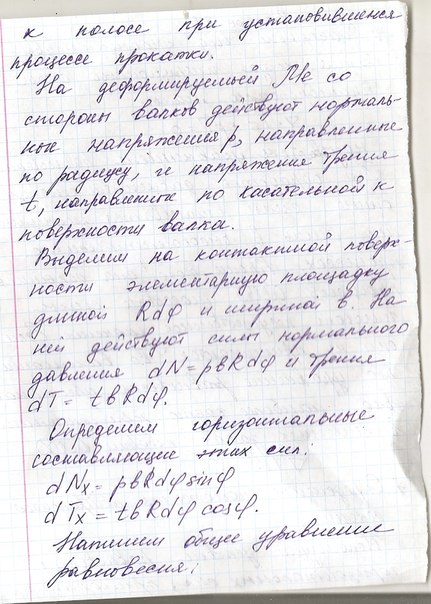 к полосе при установившемся
процессе прокатки.
На деформируемый Ме со
стороны валков действуют нормаль-
ные напряжения p, направленные
по радиусу, и напряжения трения
t, направленные по касательной к
поверхности валка.
Выделим на контактной поверх-
ности элементарную площадку
длиной Rdφ и шириной в. На
ней действуют силы нормального
давления dN = pвRdφ и трения
dT = tвRdφ.
Определим горизонтальные
составляющие этих сил:
dNx = pвRdφ sinφ
dTx = tвRdφ cosφ.
Напишем общее уравнение
равновесия: